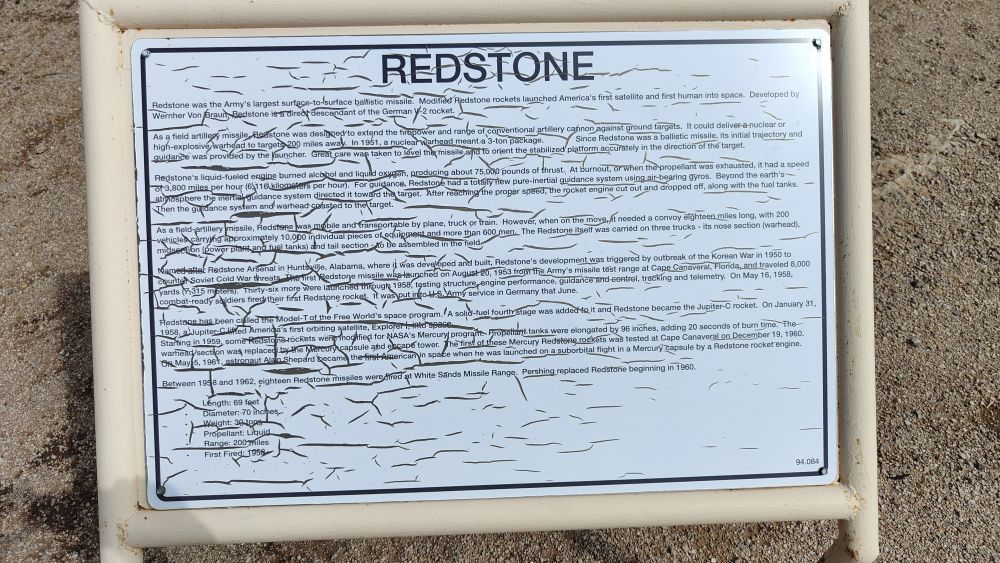 REDSTONE
Redstone was the Army's largest surface-to-surface ballistic missile. Modified Redstone rockets launched America's first satellite and first human into space. Developed by
Wernher Von Braun, Redstone is a direct descendant of the German V-2 rocket.
As a field artillery missile, Redstone was designed to extend the firepower and range of conventional artillery cannon against ground targets. It could deliver a nuclear or
high-explosive warhead to targets 200 miles away. In 1951, a nuclear warhead meant a 3-ton package. Since Redstone was a ballistic missile, its initial trajectory and
guidance was provided by the launcher. Great care was taken to level the missile and to orient the stabilized platform accurately in the direction of the target.
Redstone's liquid-fueled engine burned alcohol and liquid oxygen, producing about 75,000 pounds of thrust. At burnout, or when the propellant was exhausted, it had a speed
of 3,800 miles per hour (6,116 kilometers per hour). For guidance, Redstone had a totally new pure-inertial guidance system using air-bearing gyros. Beyond the earth's
atmosphere the inertial guidance system directed it toward the target. After reaching the proper speed, the rocket engine cut out and dropped off, along with the fuel tanks.
Then the guidance system and warhead coasted to the target.
As a field artillery missile, Redstone was mobile and transportable by plane, truck or train. However, when on the move, it needed a convoy eighteen miles long, with 200
vehicles carrying approximately 10,000 individual pieces of equipment and more than 600 men. The Redstone itself was carried on three trucks - its nose section (warhead),
midsection (power plant and fuel tanks) and tail section - to be assembled in the field.
Named after Redstone Arsenal in Huntsville, Alabama, where it was developed and built, Redstone's development was triggered by outbreak of the Korean War in 1950 to
counter Soviet Cold War threats. The first Redstone missile was launched on August 20, 1953 from the Army's missile test range at Cape Canaveral, Florida, and traveled 8,000
yards (7,315 meters). Thirty-six more were launched through 1958, testing structure, engine performance, guidance and control, tracking and telemetry. On May 16, 1958,
combat-ready soldiers fired their first Redstone rocket. It was put into U.S. Army service in Germany that June.
Redstone has been called the Model-T of the Free World's space program. A solid-fuel fourth stage was added to it and Redstone became the Jupiter-C rocket. On January 31,
1958, a Jupiter-C lifted America's first orbiting satellite, Explorer I, into space.
Starting in 1959, some Redstone rockets were modified for NASA's Mercury program. Propellant tanks were elongated by 96 inches, adding 20 seconds of burn time. The
warhead section was replaced by the Mercury capsule and escape tower. The first of these Mercury Redstone rockets was tested at Cape Canaveral on December 19, 1960.
On May 5, 1961, astronaut Alan Shepard became the first American in space when he was launched on a suborbital flight in a Mercury capsule by a Redstone rocket engine.
Between 1958 and 1962, eighteen Redstone missiles were fired at White Sands Missile Range. Pershing replaced Redstone beginning in 1960.
Length: 69 feet
Diameter: 70 inches
Weight: 30 tons
Propellant: Liquid
Range: 200 miles
First Fired: 1958
94.084